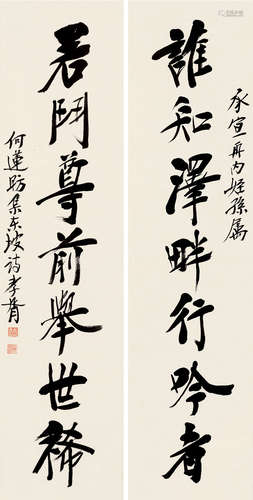 承宣再内姪孫属
誰知澤畔行吟者
若鬥尊前舉世稀
何蓮舫集东坡詩孝胥